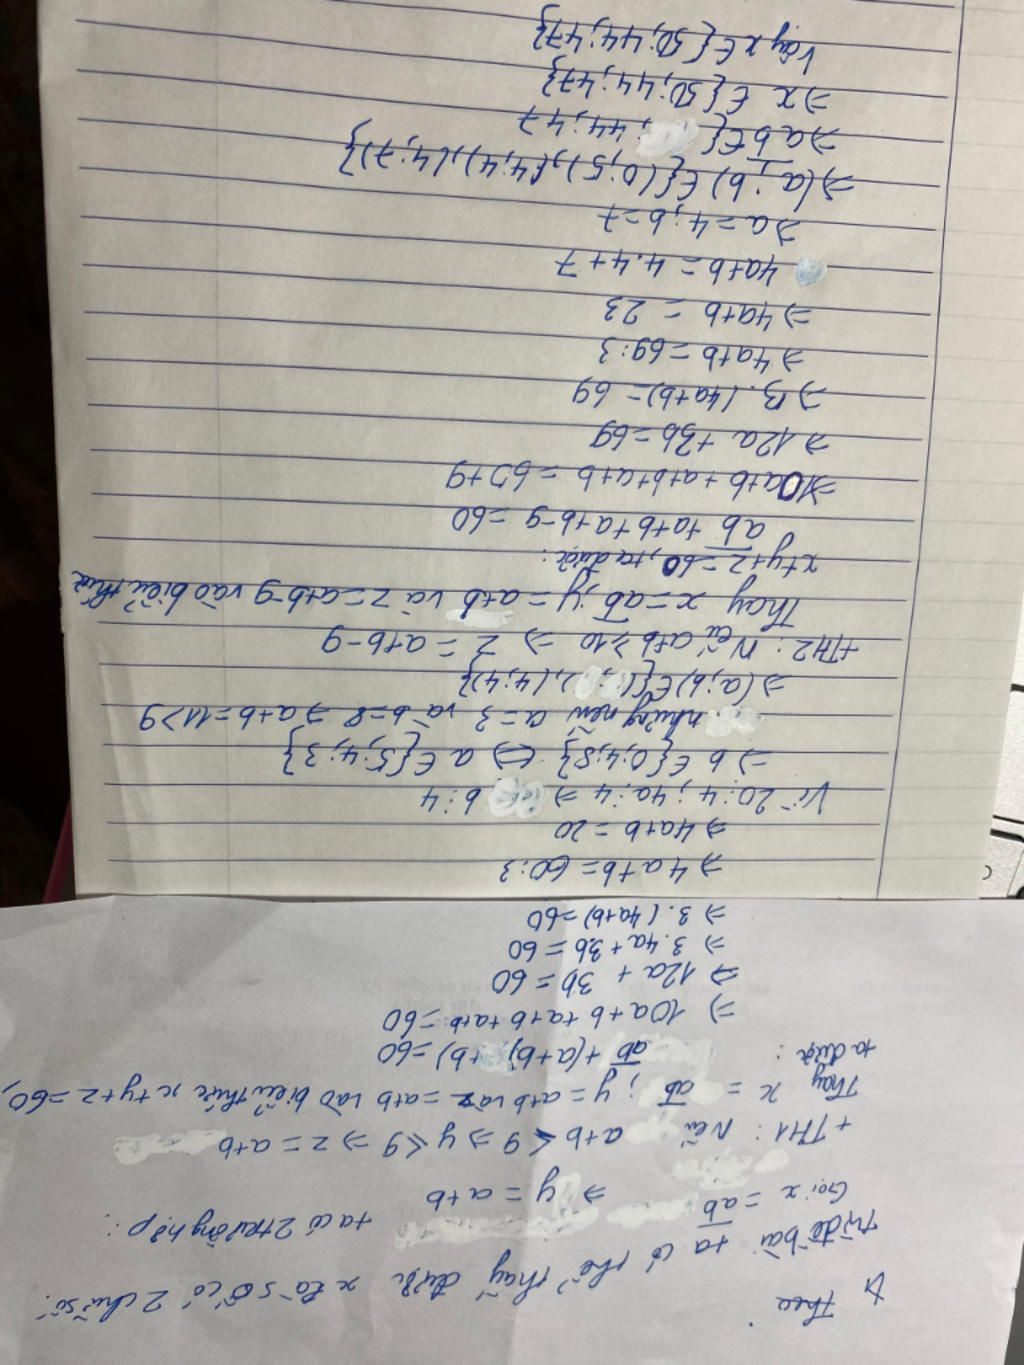 Theo
từ đề bài ta có thể thấy được x là số có 2 chữ số.
Gọi x = ab ta có 2 trường hợp:
⇒ y = a+b
+ TH1: Nếu a+b ≤ 9 ⇒ y ≤ 9 ⇒ z = a+b
Thay x = ab; y = a+b và z = a+b vào biểu thức x+y+z=60,
ta được:
ab + (a+b) + b) = 60
⇒ 10a+b+a+b+a+b = 60
⇒ 12a + 3b = 60
⇒ 3.4a + 3b = 60
⇒ 3.(4a+b) = 60
⇒ 4a+b = 60:3
⇒ 4a+b = 20
Vì 20⋮4; 4a⋮4 ⇒ b⋮4
⇒ b ∈ {0;4;8} ⇔ a ∈ {5;4;3}
nhưng nếu a=3 và b=8 ⇒ a+b=11>9
⇒ (a;b) ∈ {( ; ), (4;4)}
+TH2: Nếu a+b ≥ 10 ⇒ z = a+b-9
Thay x = ab; y = a+b và z = a+b-9 vào biểu thức
x+y+z=60, ta được:
ab + a+b+a+b-9 = 60
⇒ 10a+b+a+b+a+b = 60+9
⇒ 12a + 3b = 69
⇒ 3.(4a+b) = 69
⇒ 4a+b = 69:3
⇒ 4a+b = 23
4a+b = 4.4+7
⇒ a = 4; b = 7
⇒ (a;b) ∈ {(0;5), (4;4), (4;7)}
⇒ ab ∈ { ; 44; 47
⇒ x ∈ {50; 44; 47}
Vậy x ∈ {50; 44; 47}